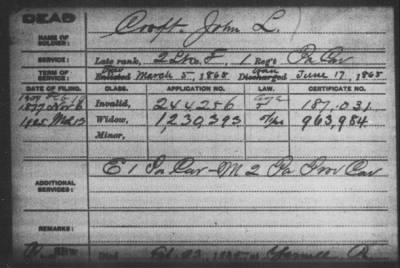 DEAD
NAME OF SOLDIER: Croft, John L.
SERVICE: Late rank, 2 Lt Co. F, 1 Reg't Pa Cav
TERM OF SERVICE: Enlisted March 5, 1865 Discharged June 17, 1865
DATE OF FILING. CLASS. APPLICATION NO. LAW. CERTIFICATE NO.
1877 Nov 6 Invalid, 244256 187,031
1925 Mch 13 Widow, 1,230,393 963,984
Minor,
ADDITIONAL SERVICES: E 1 Pa Cav - M 2 Pa Prov Cav
REMARKS:
Died Feb. 23, 1925 at Farrell, Pa